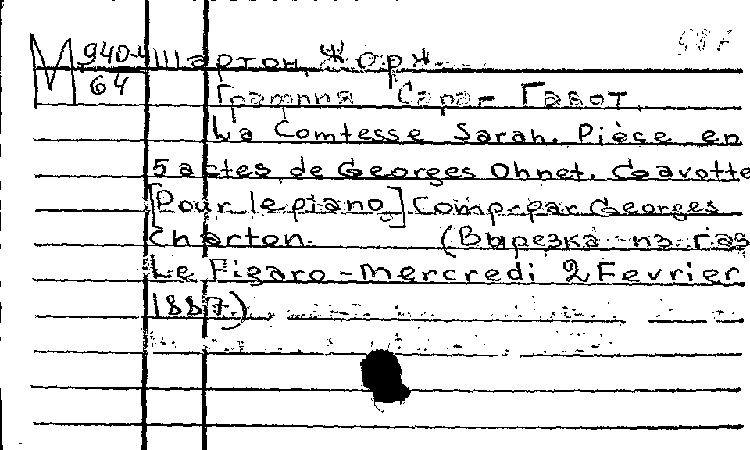 М 940-4 Шартон, Жорж.
64
Графиня Сара - Гавот.
La Comtesse Sarah. Pièce en
5 actes de Georges Ohnet. Gavotte
[Pour le piano] Comp. par Georges
Charton. (Вырезка из газ
Le Figaro - Mercredi 2 Fevrier
1887.)